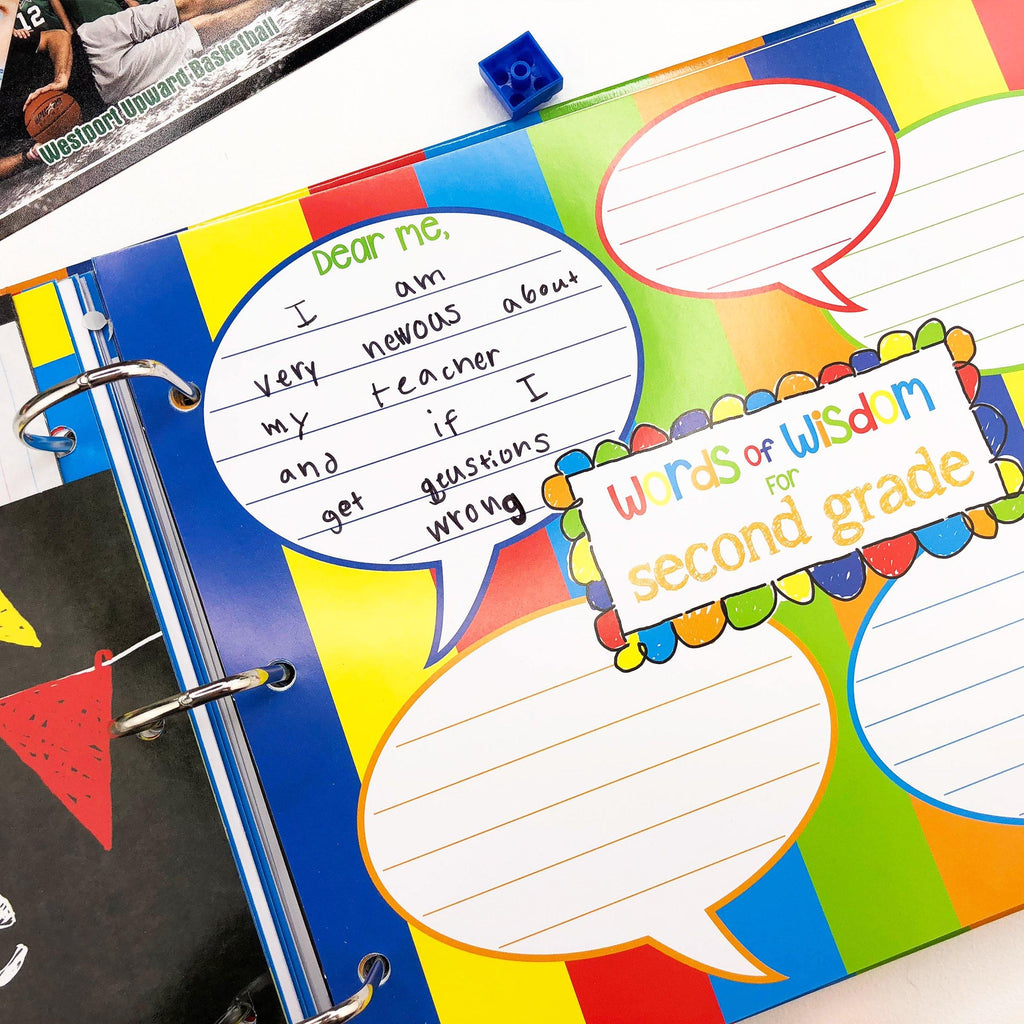 12
Westport Upward Basketball
Dear me,
I am
very newous about
my teacher
and if I
get qeustions
wrong
words of wisdom
for
second grade